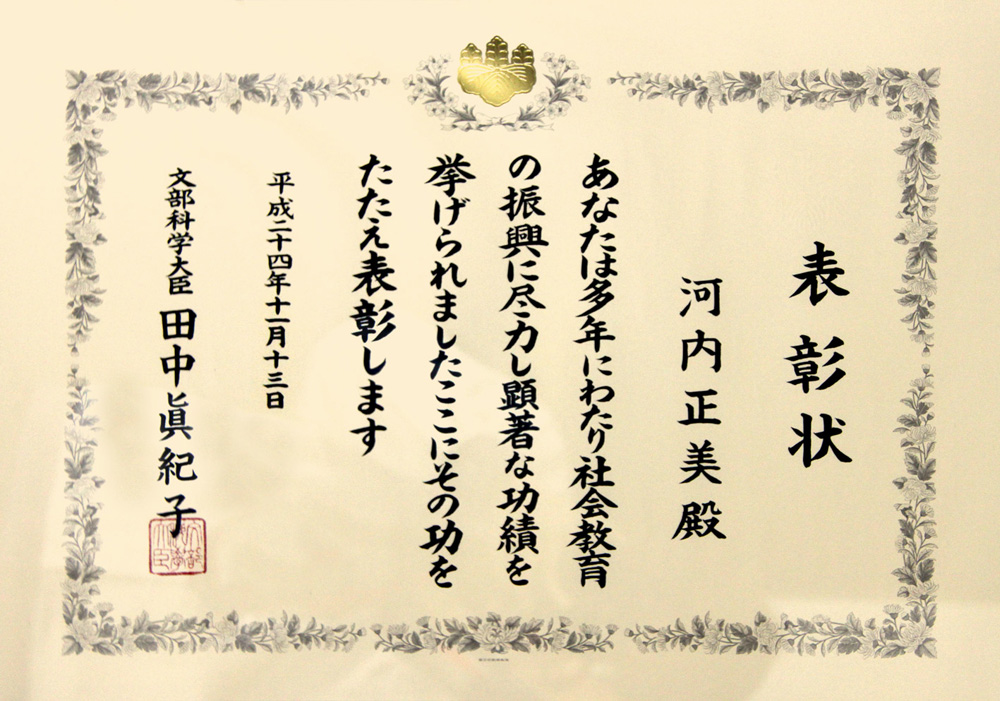 表彰状
河内正美殿
あなたは多年にわたり社会教育
の振興に尽力し顕著な功績を
挙げられましたここにその功を
たたえ表彰します
平成二十四年十一月十三日
文部科学大臣 田中眞紀子